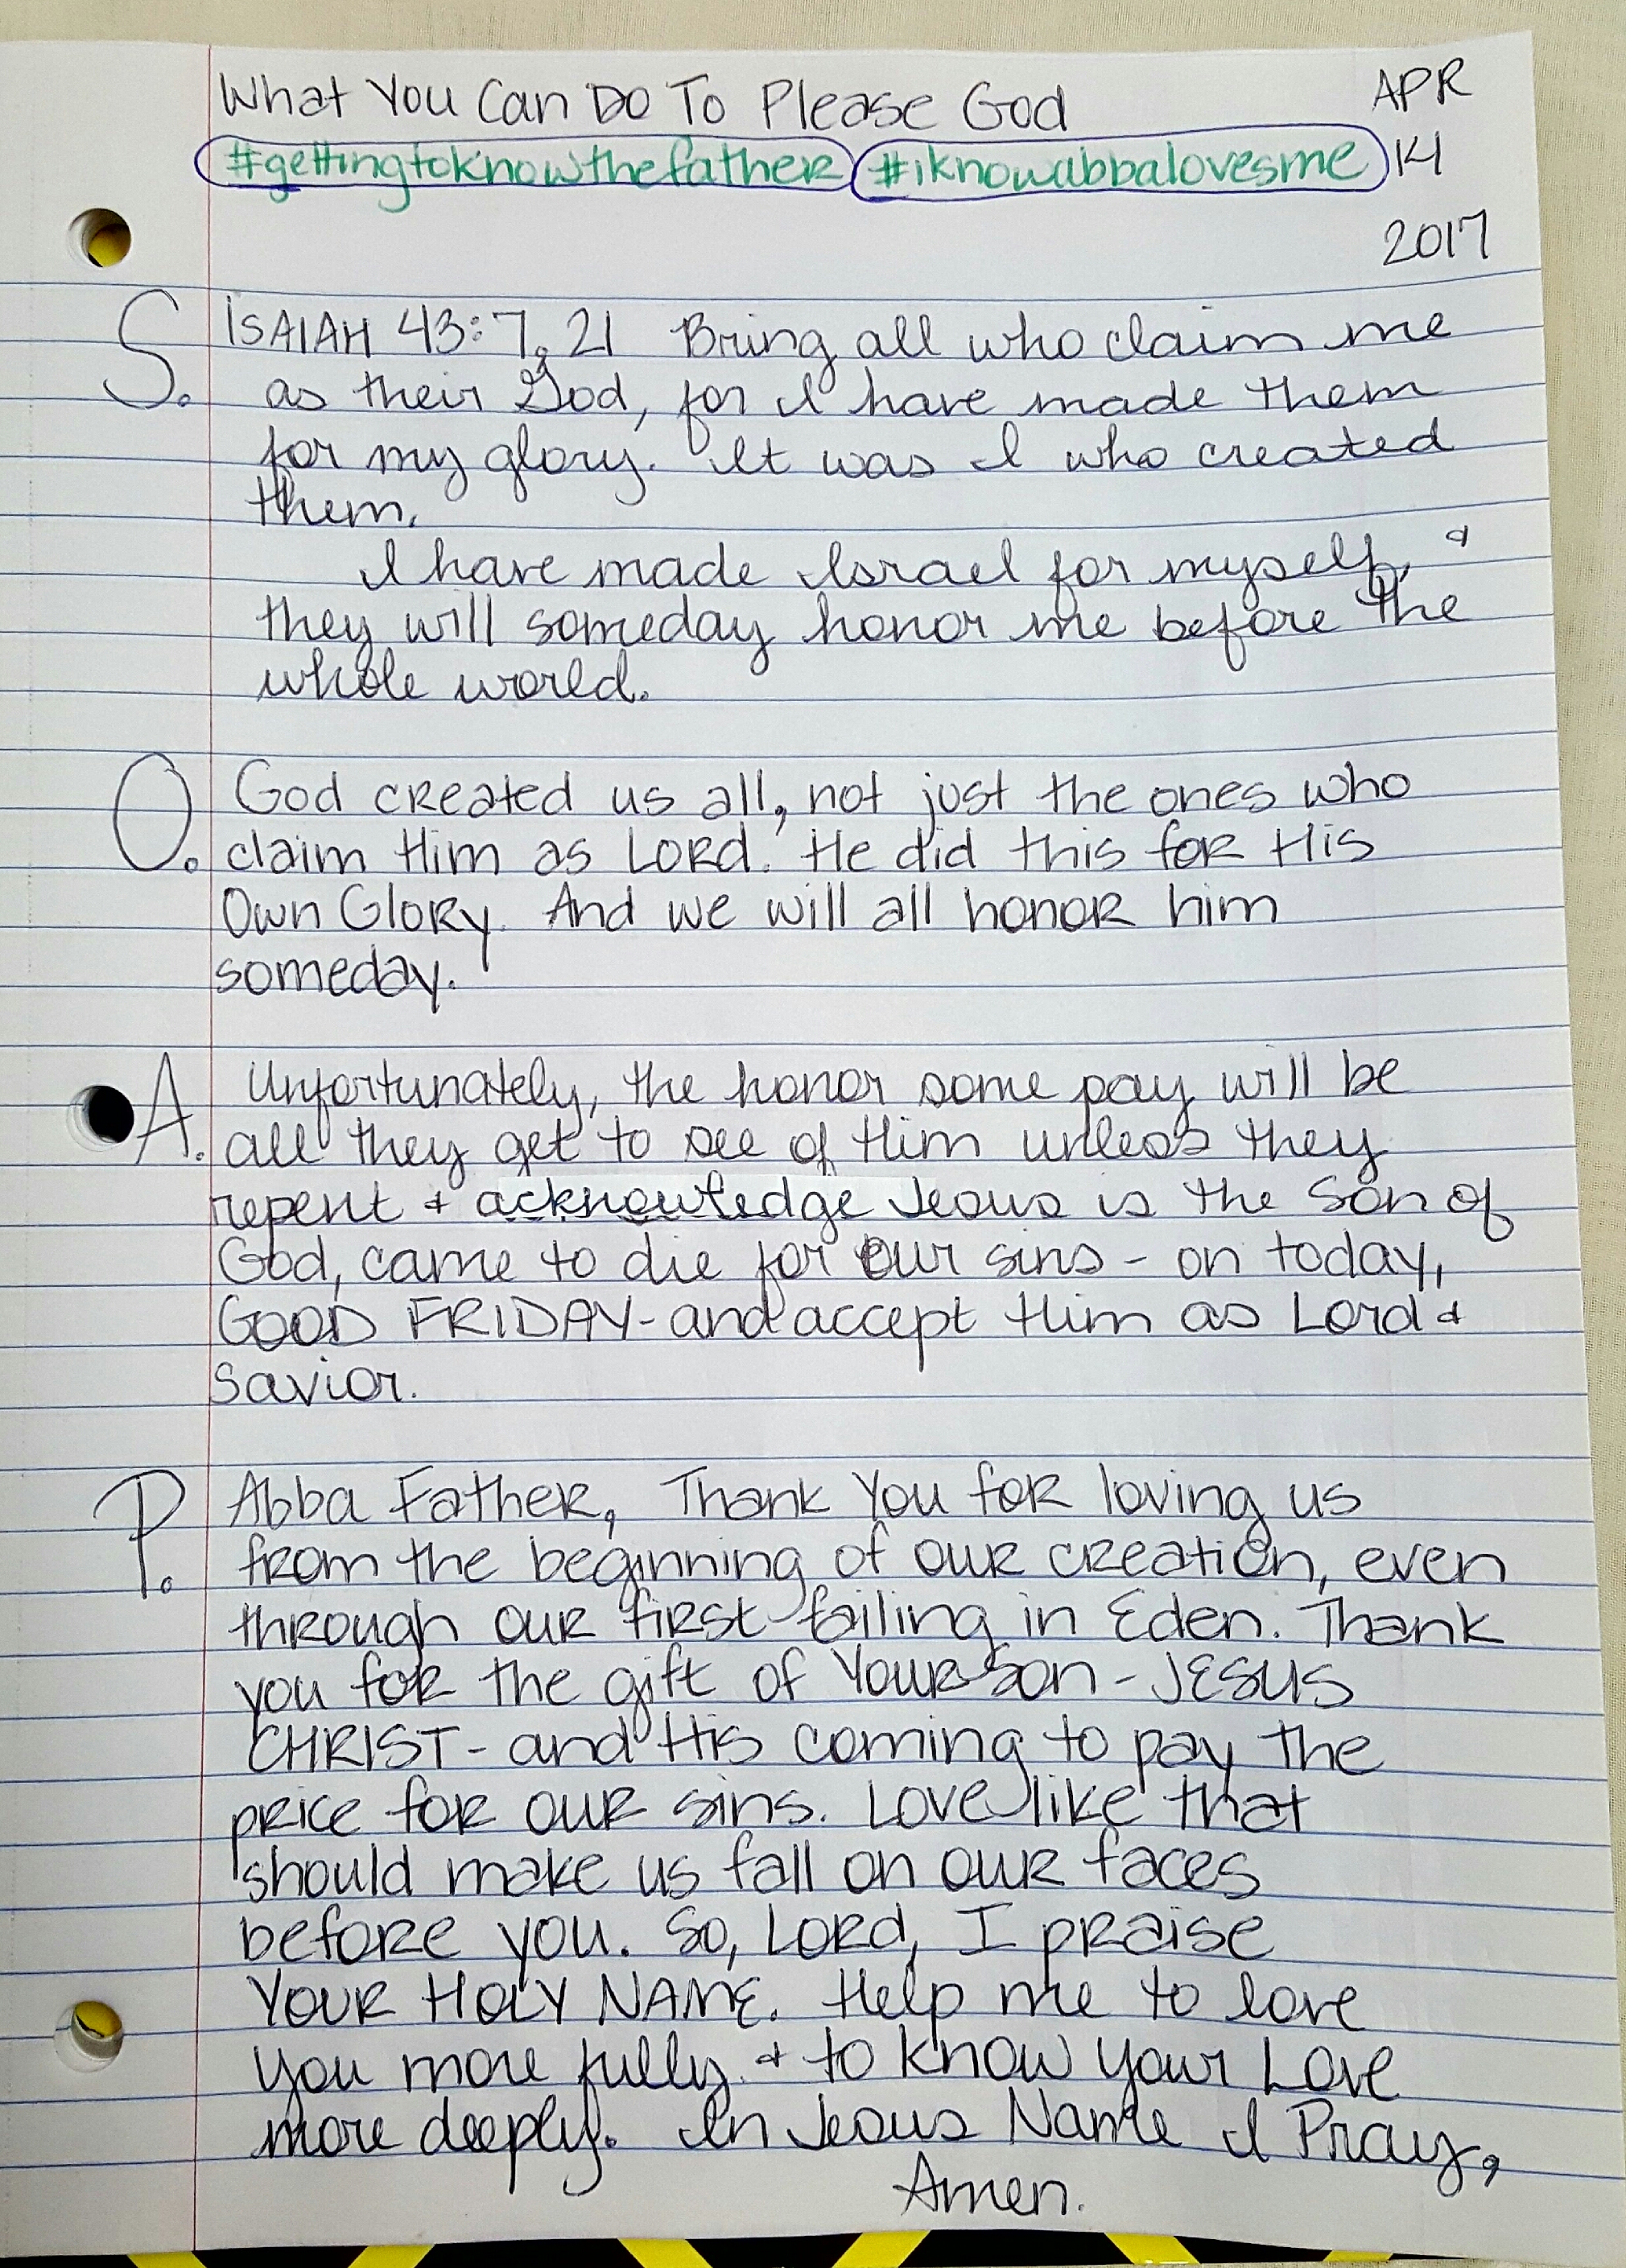 What You Can Do To Please God APR
#gettingtoknowthefather #iknowabbalovesme 14
2017
S. ISAIAH 43:7, 21 Bring all who claim me
as their God, for I have made them
for my glory. It was I who created
them.
I have made Israel for myself, &
they will someday honor me before the
whole world.
O. God created us all, not just the ones who
claim Him as Lord. He did this for His
Own Glory. And we will all honor him
someday.
A. Unfortunately, the honor some pay will be
all they get to see of Him unless they
repent & acknowledge Jesus is the Son of
God, came to die for our sins - on today,
GOOD FRIDAY - and accept Him as Lord &
Savior.
P. Abba Father, Thank You for loving us
from the beginning of our creation, even
through our first failing in Eden. Thank
you for the gift of Your Son - JESUS
CHRIST - and His coming to pay the
price for our sins. Love like that
should make us fall on our faces
before you. So, Lord, I praise
YOUR HOLY NAME. Help me to love
you more fully & to know your Love
more deeply. In Jesus Name I Pray,
Amen.